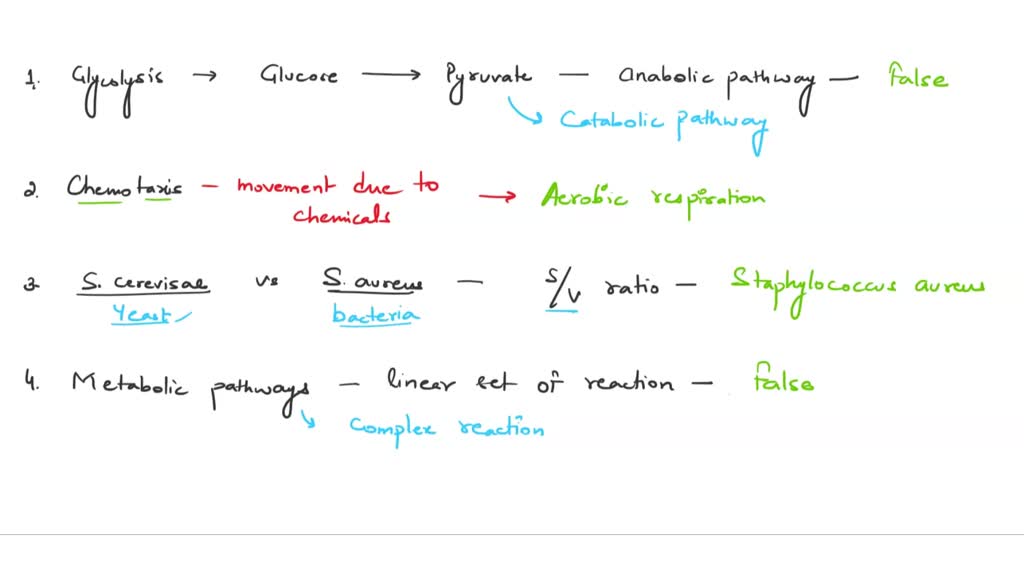 1. Glycolysis → Glucose → Pyruvate — anabolic pathway — false
Catabolic pathway
2. Chemotaxis — movement due to chemicals → Aerobic respiration
3 S. cerevisae vs S. aureus — S/V ratio — Staphylococcus aureus
Yeast bacteria
4. Metabolic pathways — linear set of reaction — false
Complex reaction